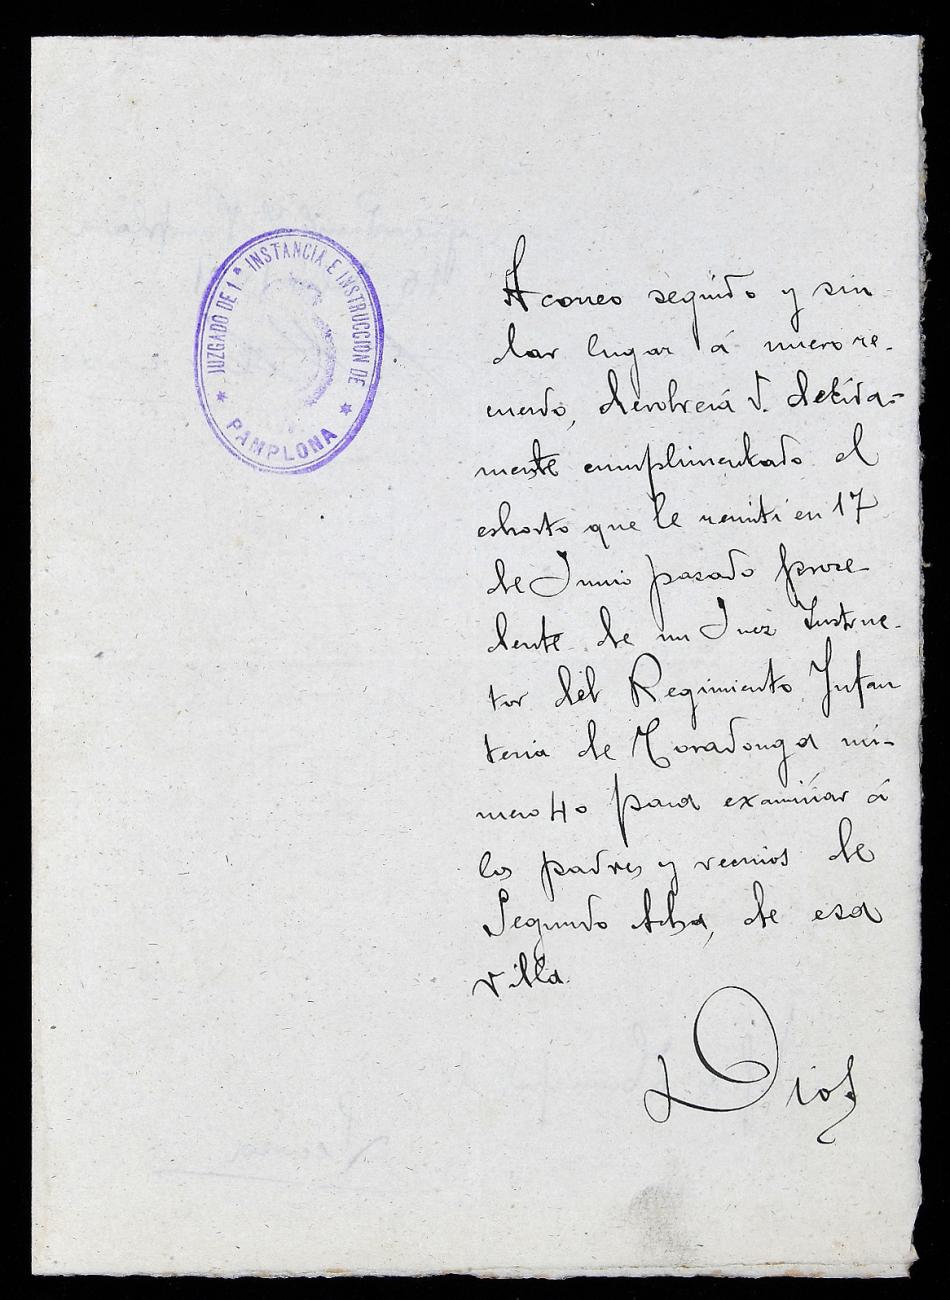 JUZGADO DE 1.ª INSTANCIA E INSTRUCCION DE
PAMPLONA
A correo seguido y sin
dar lugar á nuevo re-
cuerdo, devolverá V. debida-
mente cumplimentado el
exhorto que le remiti en 17
de Junio pasado proce
dente de un Juez Instruc-
tor del Regimiento Infan
teria de Covadonga nú-
mero 40 para examinar á
los padres y vecinos de
Segundo Acha, de esa
villa.
Dios